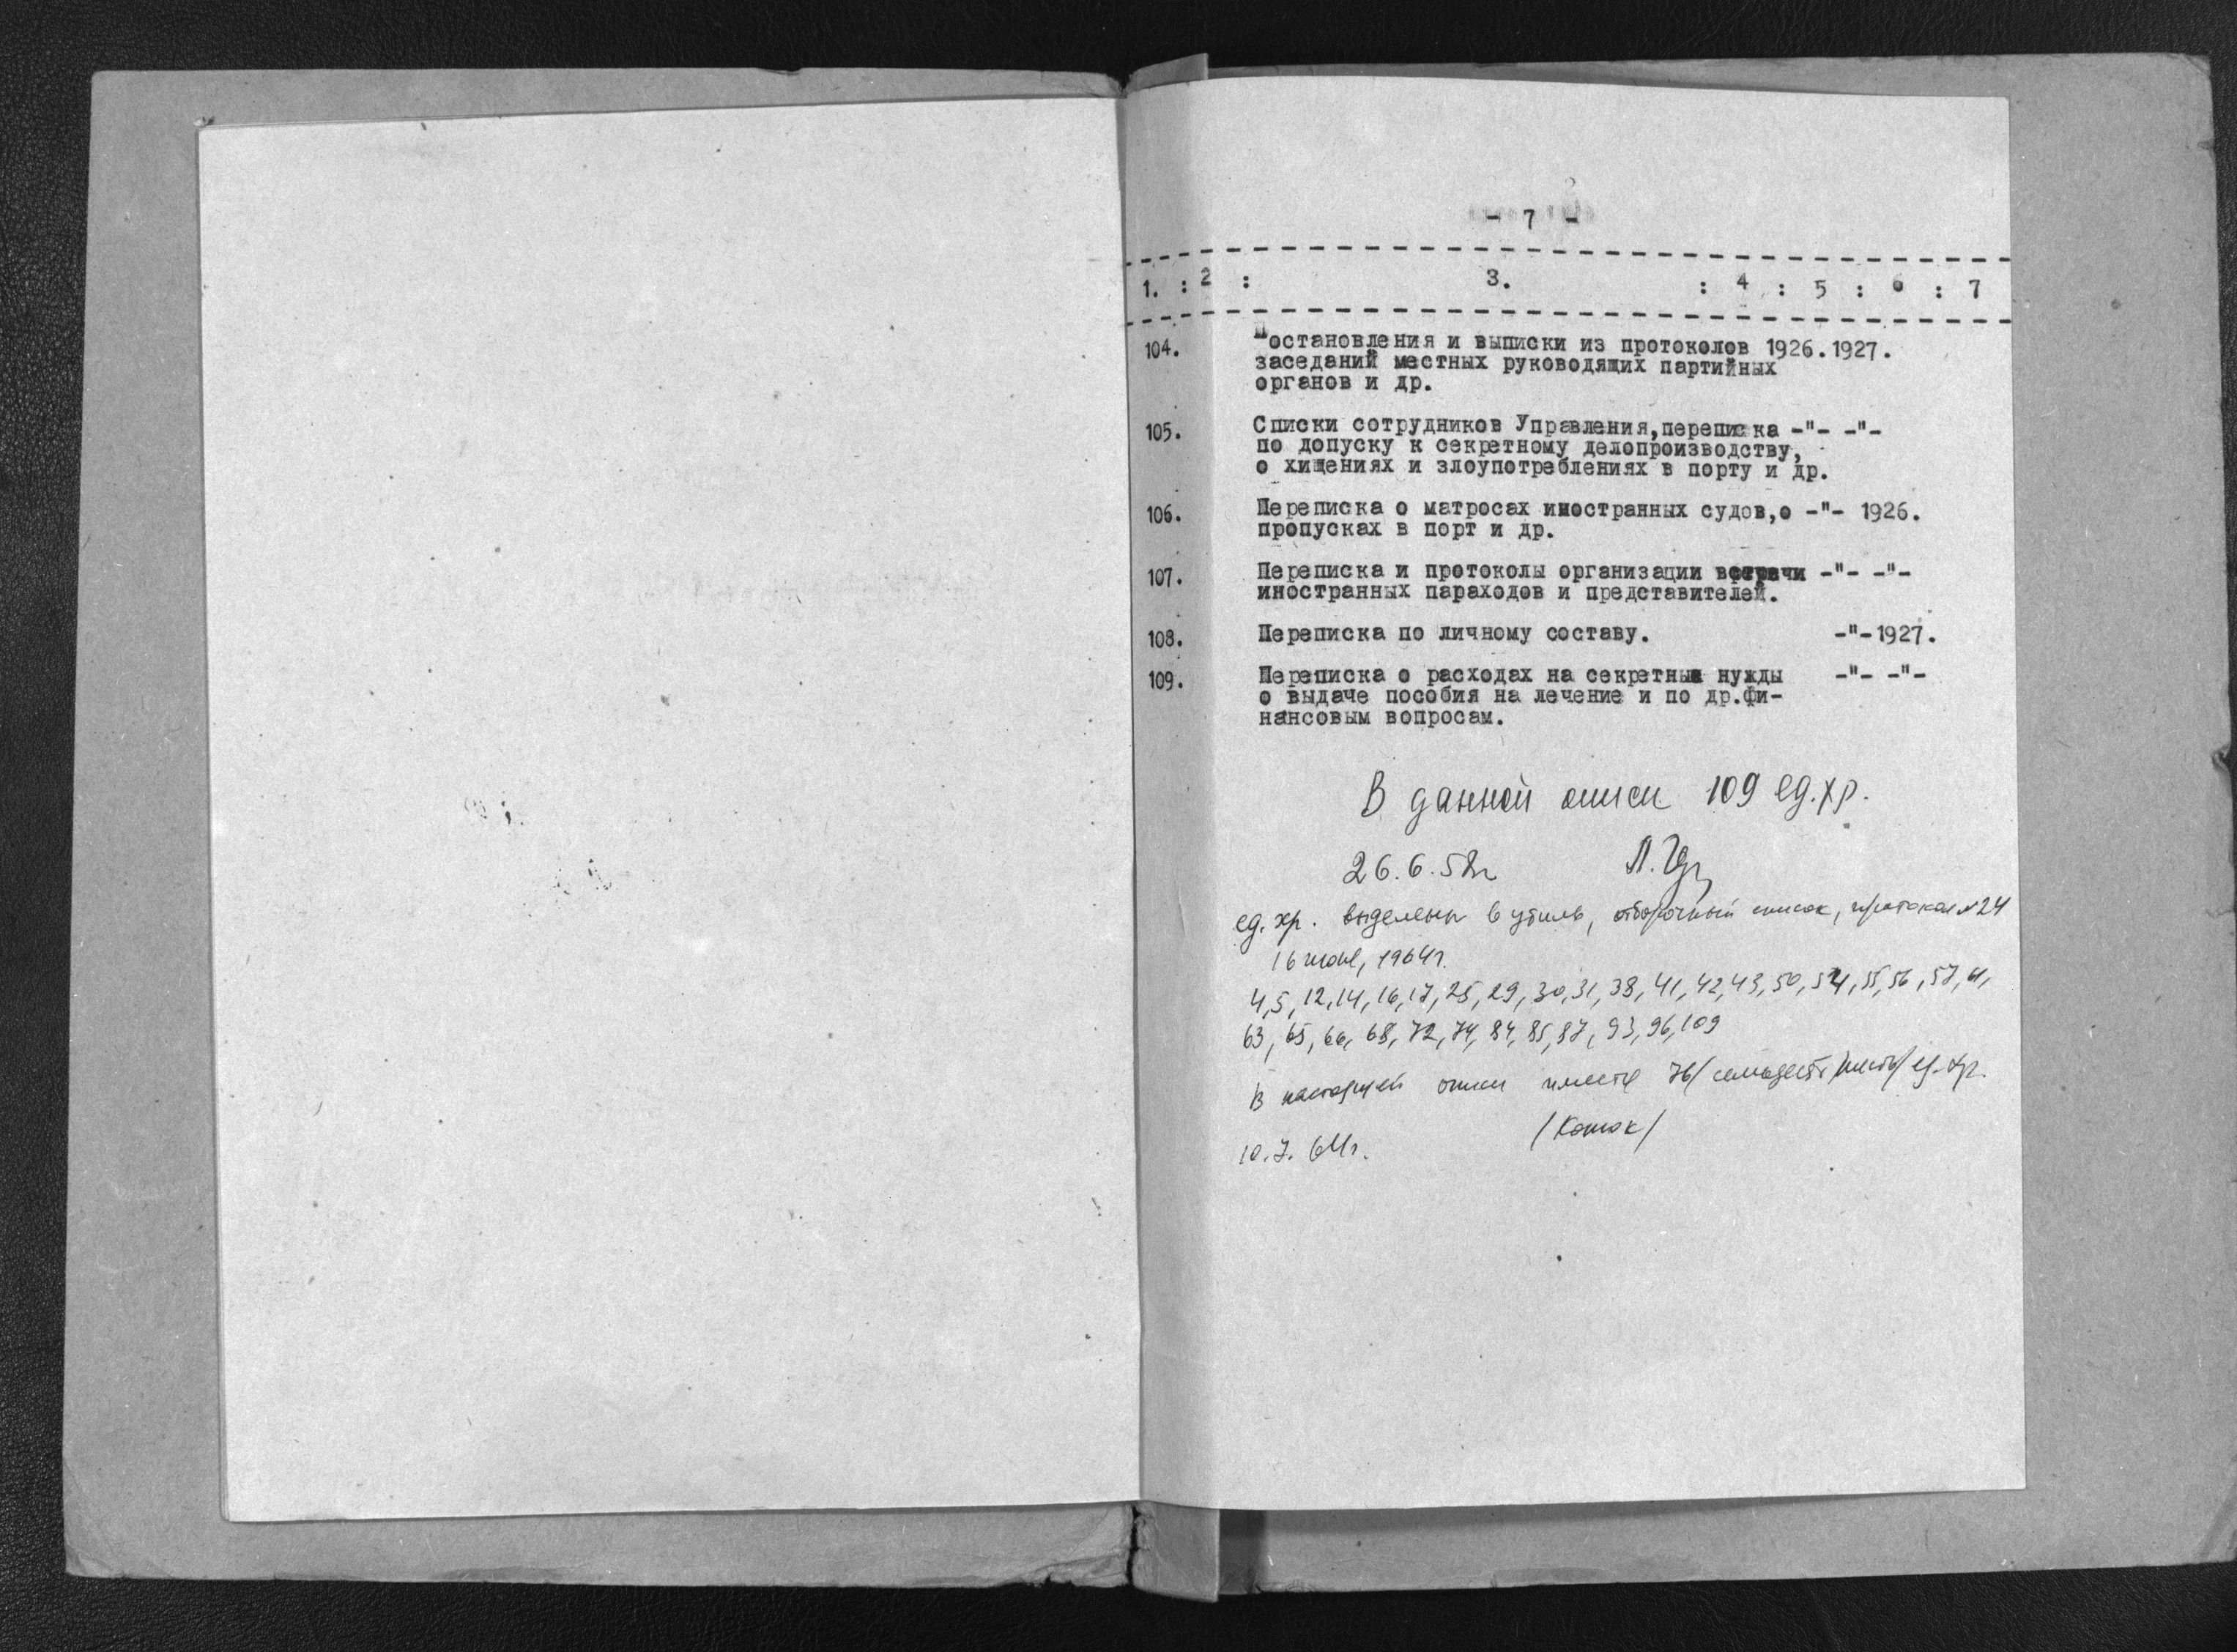 - 7 -
1. : 2 : 3. : 4 : 5 : 6 : 7
104. Постановления и выписки из протоколов 1926.1927.
заседаний местных руководящих партийных
органов и др.
105. Списки сотрудников Управления,переписка -"- -"-
по допуску к секретному делопроизводству,
о хищениях и злоупотреблениях в порту и др.
106. Переписка о матросах иностранных судов,о -"- 1926.
пропусках в порт и др.
107. Переписка и протоколы организации встречи -"- -"-
иностранных параходов и представителей.
108. Переписка по личному составу. -"-1927.
109. Переписка о расходах на секретные нужды -"- -"-
о выдаче пособия на лечение и по др.фи-
нансовым вопросам.
В данной описи 109 ед.хр.
26.6.58г
ед. хр. выделены в утиль, отборочный список, протокол №24
16 июне, 1964г.
4,5, 12,14, 16,17, 25, 29, 30,31, 38, 41, 42,43, 50, 54, 55, 56, 57, 61,
63, 65, 66, 68, 72, 74, 84, 85, 87, 93, 96, 109
В настоящей описи имеется 76/семьдесят шесть/ ед. хр.
10.7. 64г. /Конюк/